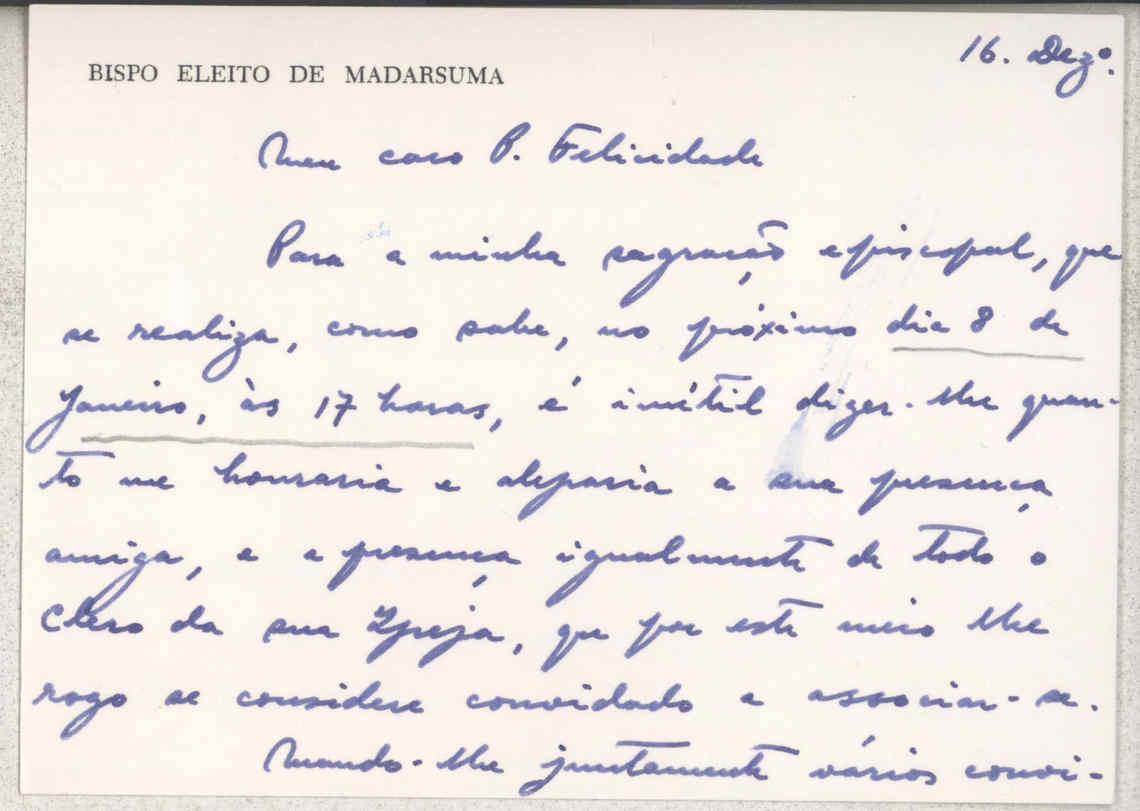 BISPO ELEITO DE MADARSUMA
16. Dezº.
Meu caro P. Felicidade
Para a minha sagração episcopal, que
se realiza, como sabe, no próximo dia 8 de
Janeiro, às 17 horas, é inútil dizer-lhe quan-
to me honraria e alegraria a sua presença
amiga, e a presença igualmente de todo o
Clero da sua Igreja, que por este meio lhe
rogo se considere convidado a associar-se.
Mando-lhe juntamente vários convi-